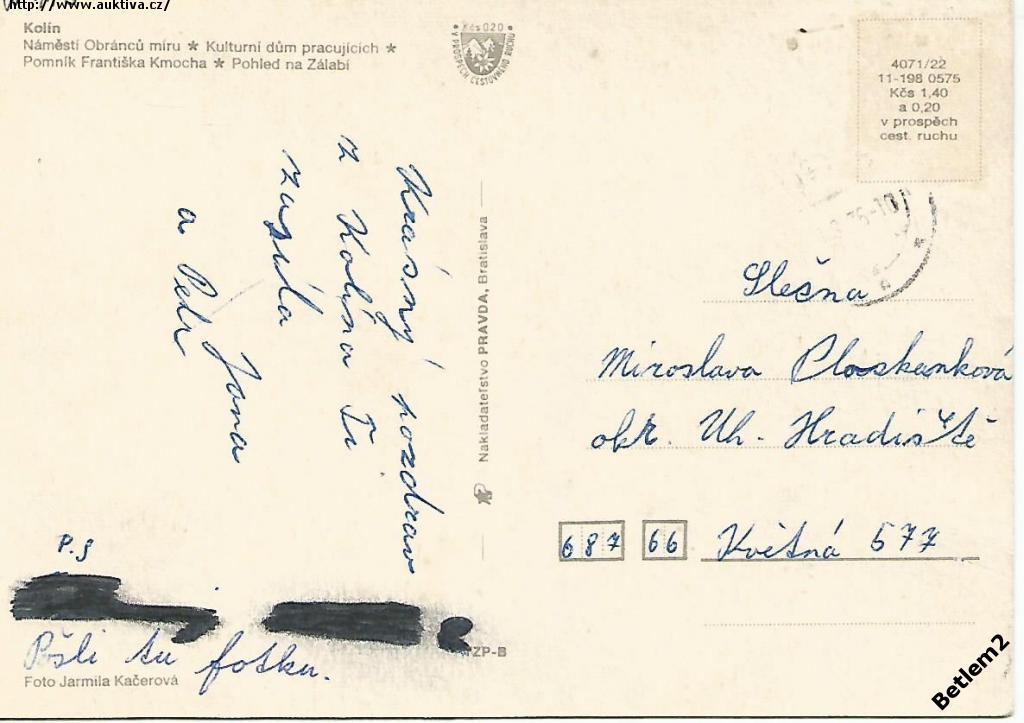 http://www.auktiva.cz/
Kolín
Náměstí Obránců míru ★ Kulturní dům pracujících ★
Pomník Františka Kmocha ★ Pohled na Zálabí
Kčs 020
V PROSPĚCH CESTOVNÉHO RUCHU
4071/22
11-198 0575
Kčs 1,40
a 0,20
v prospěch
cest. ruchu
Krásný pozdrav
z Kolína Ti
zasílá
Jana
a Petr
P.S
Pošli tu fotku.
Foto Jarmila Kačerová
Nakladateľstvo PRAVDA, Bratislava
TZP-B
Slečna
Miroslava Ploskonková
okr. Uh. Hradiště
687 66 Květná 577
Betlem2